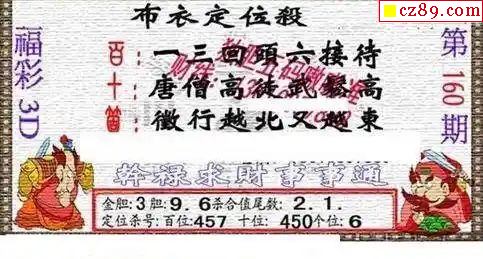 cz89.com
布衣定位殺
福彩3D
第160期
百:一三回頭六接待
十:唐僧高徒武鬆高
箇:微行越北又越東
幹祿求財事事通
金胆:3胆:9.6杀合值尾数:2.1.
定位杀号:百位:457 十位:450个位:6